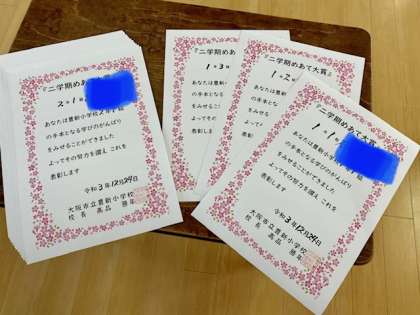 『二学期めあて大賞』
2の1
あなたは豊新小学校2年1組
の手本となる学びのがんばり
をみせることができました
よってその努力を讃え これを
表彰します
令和3年12月24日
大阪市立豊新小学校
校長 高品 勝年
『二学期めあて大賞』
1の3
あなたは豊新小
の手本とな
をみせる
よってそ
表彰し
『二学期めあて大賞』
1の2
あなたは
の手本
をみせ
よって
表
『二学期めあて大賞
1の1
あなたは豊新小学校
の手本となる学びのがんばり
をみせることができました
よってその努力を讃え これを
表彰します
令和3年12月24日
大阪市立豊新小学校
校長 高品 勝年